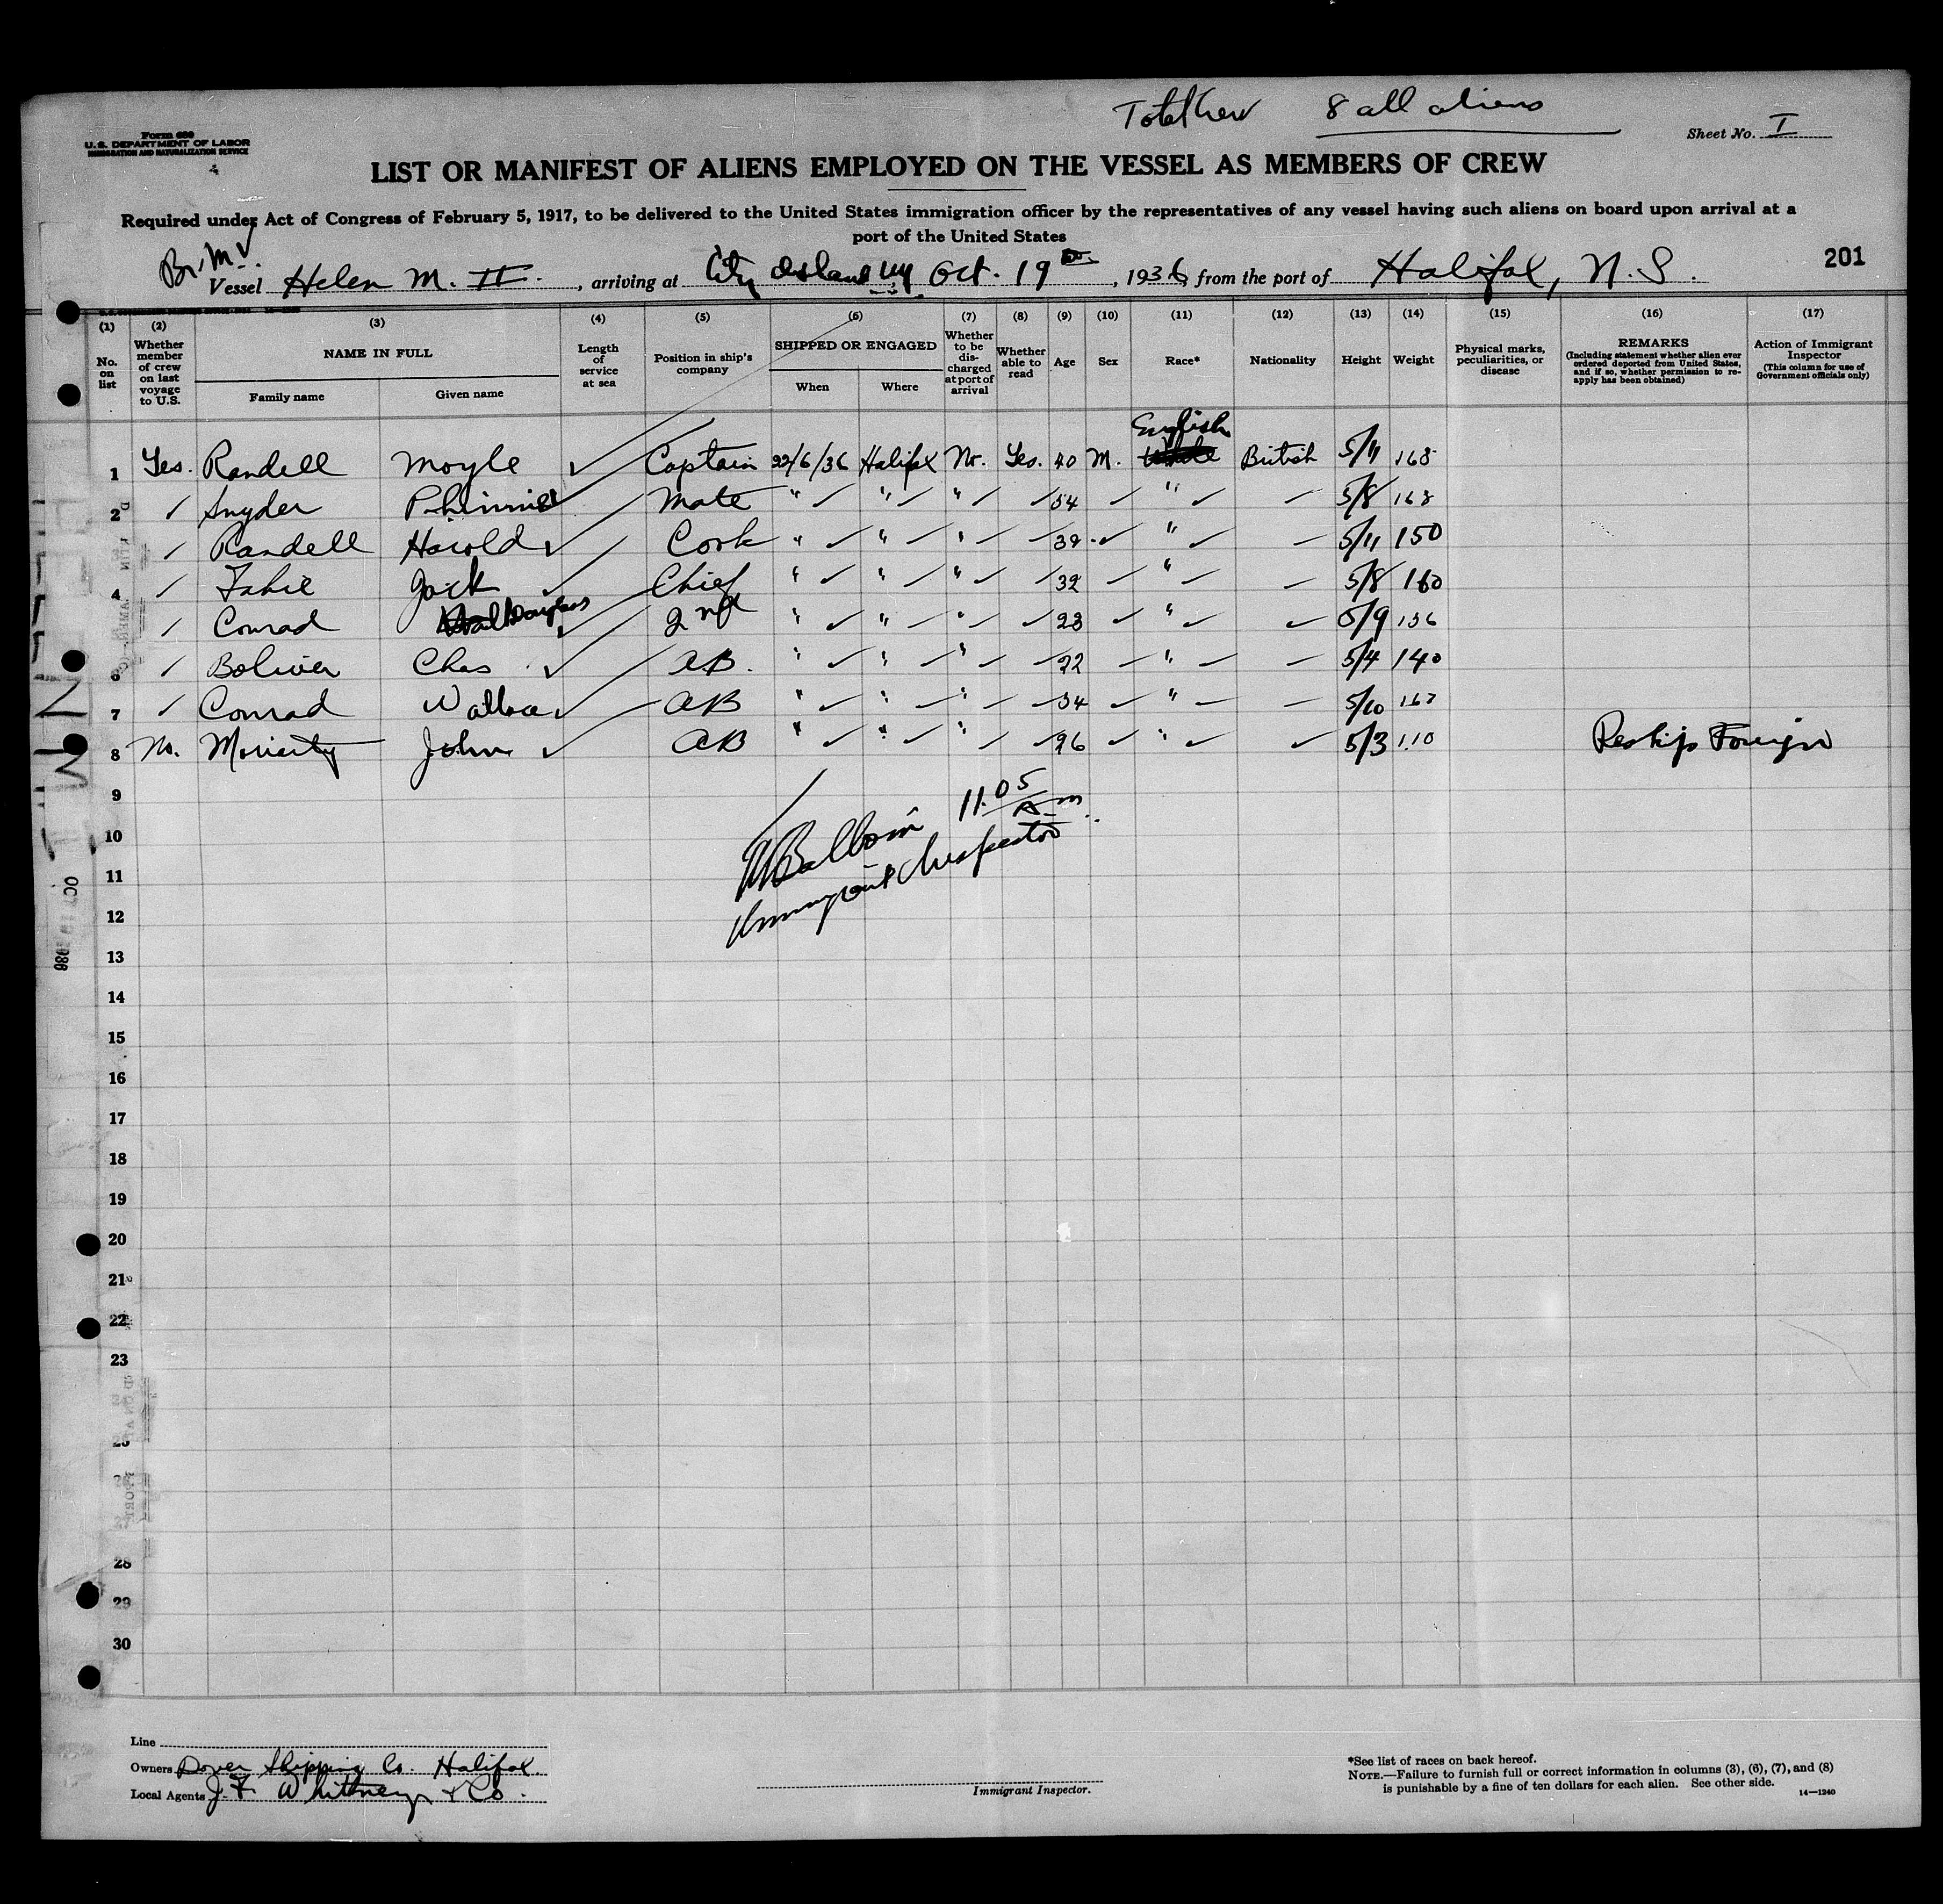 Total Crew 8 all aliens
Form 680
U. S. DEPARTMENT OF LABOR
IMMIGRATION AND NATURALIZATION SERVICE
Sheet No. I
LIST OR MANIFEST OF ALIENS EMPLOYED ON THE VESSEL AS MEMBERS OF CREW
Required under Act of Congress of February 5, 1917, to be delivered to the United States immigration officer by the representatives of any vessel having such aliens on board upon arrival at a
port of the United States
Br. M.V.
Vessel Helen M. II , arriving at City Island NY Oct. 19 , 1936 from the port of Halifax, N. S.
201
(1) (2) (3) (4) (5) (6) (7) (8) (9) (10) (11) (12) (13) (14) (15) (16) (17)
No. on list Whether member of crew on last voyage to U.S. NAME IN FULL Family name Given name Length of service at sea Position in ship's company SHIPPED OR ENGAGED When Where Whether to be discharged at port of arrival Whether able to read Age Sex Race* Nationality Height Weight Physical marks, peculiarities, or disease REMARKS (Including statement whether alien ever ordered deported from United States, and if so, whether permission to re-apply has been obtained) Action of Immigrant Inspector (This column for use of Government officials only)
English
1 Yes. Randell Moyle ✓ Captain 22/6/36 Halifax No. Yes. 40 M. White British 5/11 168
2 ✓ Snyder ✓ Mate " ✓ " ✓ " ✓ ✓ 54 ✓ " ✓ ✓ 5/8 168
3 ✓ Randell Harold ✓ Cook " ✓ " ✓ " ✓ ✓ 39 ✓ " ✓ ✓ 5/11 150
4 ✓ Fahie Jack ✓ Chief " ✓ " ✓ " ✓ ✓ 32 ✓ " ✓ ✓ 5/8 160
5 ✓ Conrad Douglas ✓ 2nd " ✓ " ✓ " ✓ ✓ 23 ✓ " ✓ ✓ 5/9 136
6 ✓ Boliver Chas ✓ A.B. " ✓ " ✓ " ✓ ✓ 22 ✓ " ✓ ✓ 5/4 140
7 ✓ Conrad Wallace ✓ AB " ✓ " ✓ " ✓ ✓ 34 ✓ " ✓ ✓ 5/10 163
8 No. Moriarty John ✓ AB " ✓ " ✓ " ✓ ✓ 26 ✓ " ✓ ✓ 5/3 110 Reships Foreign
9
11.05
A m
10
11
Immigrant Inspector
12
13
OCT 19 1936
14
15
16
17
18
19
20
21
22
23
28
29
30
Line
Owners Dover Shipping Co. Halifax
Local Agents J. F. Whitney & Co.
Immigrant Inspector.
*See list of races on back hereof.
NOTE.—Failure to furnish full or correct information in columns (3), (6), (7), and (8)
is punishable by a fine of ten dollars for each alien. See other side.
14—1240